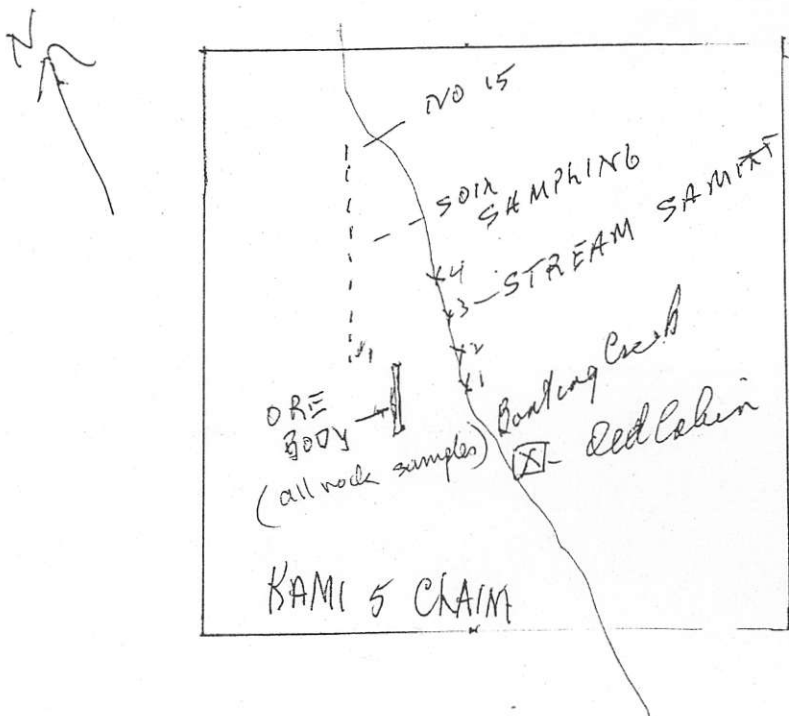 N
NO 15
SOIL
SAMPLING
STREAM SAMPLE
4
3
2
1
#1
ORE
BODY
(all rock samples)
Creek
Old Cabin
X
KAMI 5 CLAIM